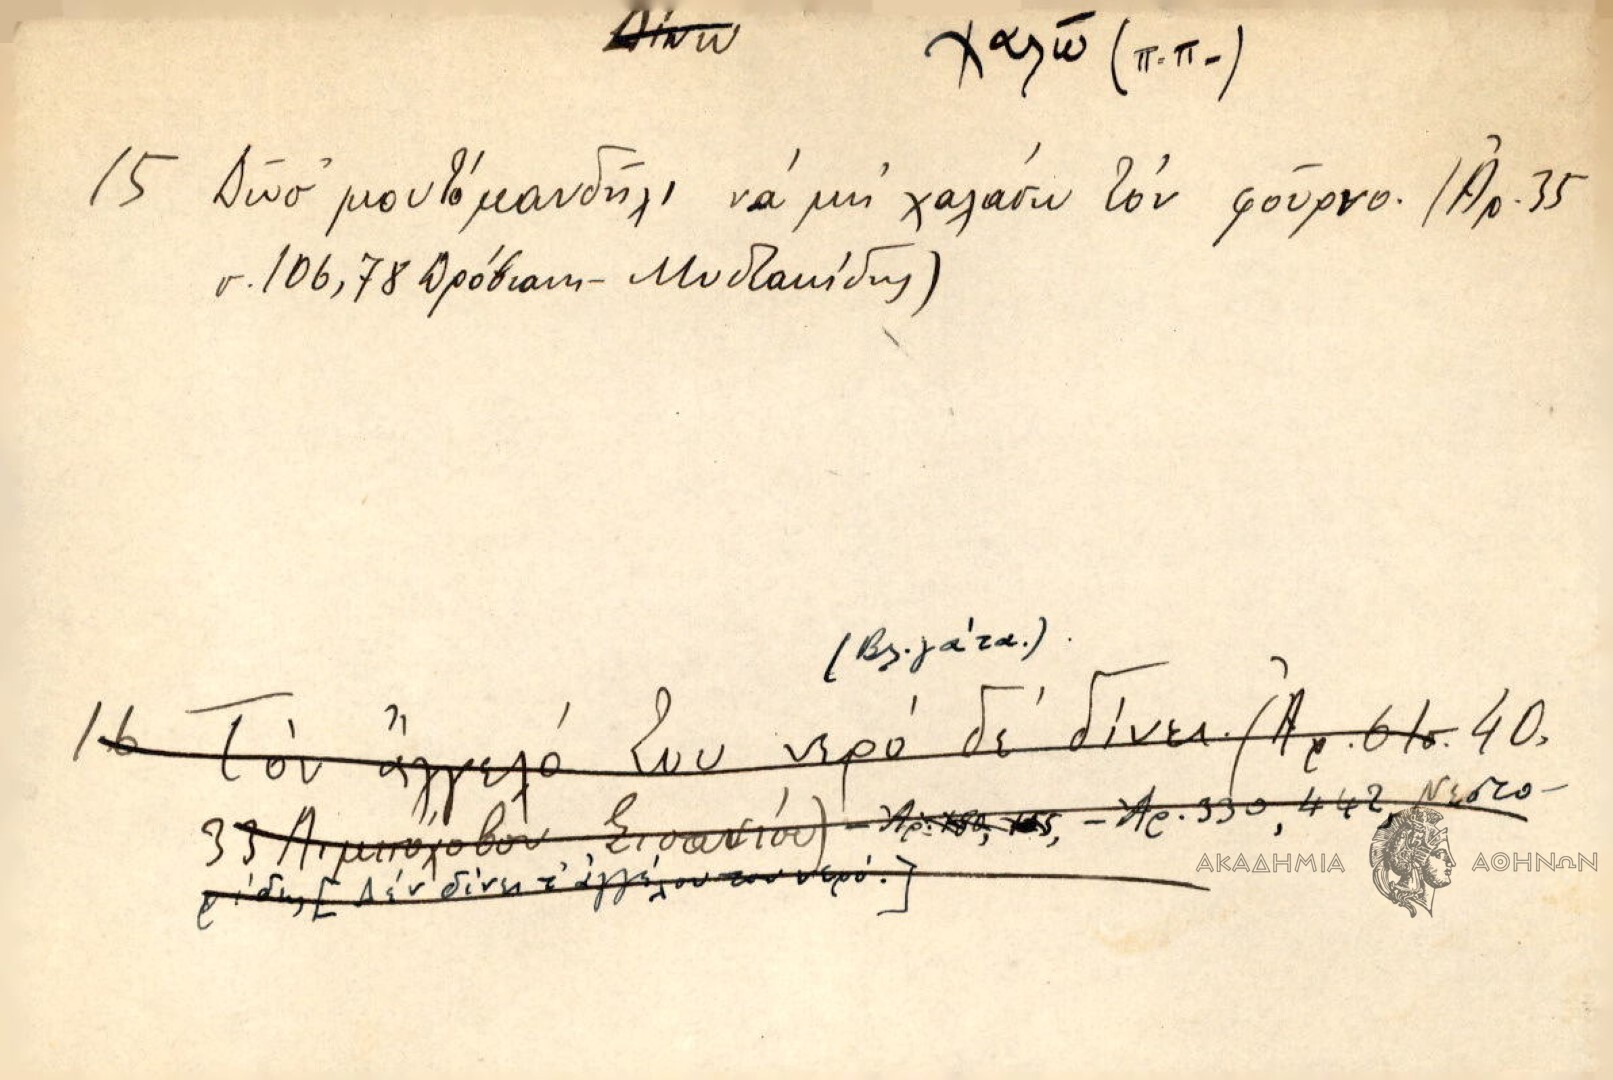 Δίνω χαλῶ (π.π.)
15 Δῶσ' μου τὸ μανδήλι νά μή χαλάσω τόν φοῦρνο. (Ἀρ. 35
σ. 106, 78 Δρόβιανη - Μυστακίδης)
(Βλ. γάτα.)
16 Τόν ἄγγελό του νερό δέ δίνει. (Ἀρ. 61 σ. 40,
33 Σισανίου) - Ἀρ. - Ἀρ. 330, 442, Νεστο-
ρίδης [Δέν δίνει τ' ἀγγέλου του νερό.]
ΑΚΑΔΗΜΙΑ ΑΘΗΝΩΝ